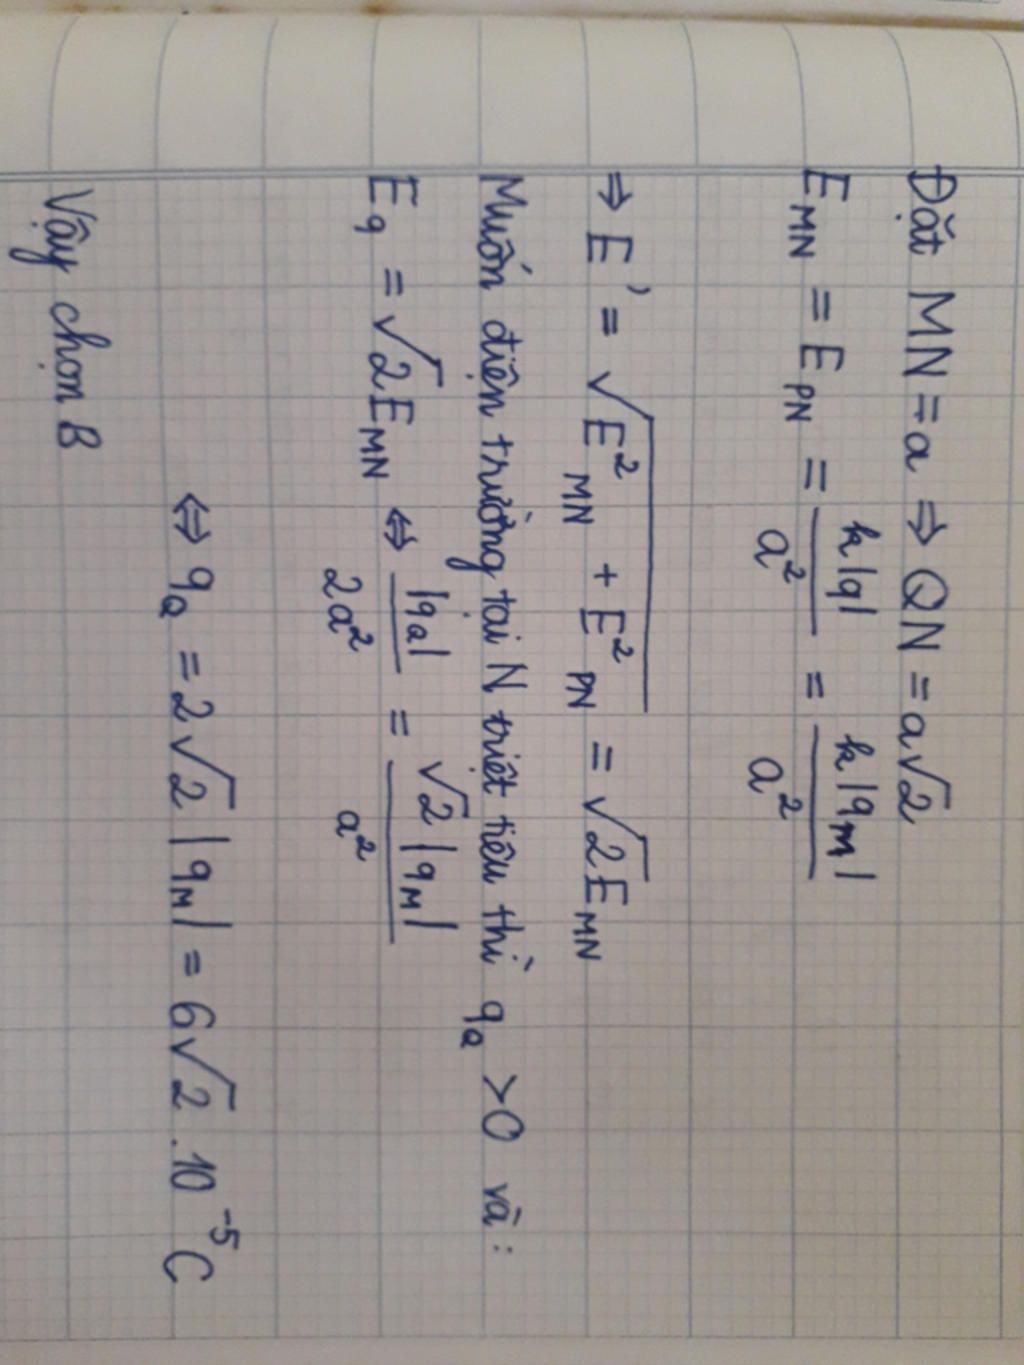 Đặt MN = a ⇒ QN = a√2
E_MN = E_PN = k|q|/a² = k|q_M|/a²
⇒ E' = √(E²_MN + E²_PN) = √2E_MN
Muốn điện trường tại N triệt tiêu thì q_Q >0 và :
E_q = √2E_MN ⇔ |q_Q|/2a² = √2|q_M|/a²
⇔ q_Q = 2√2|q_M| = 6√2.10⁻⁵C
Vậy chọn B